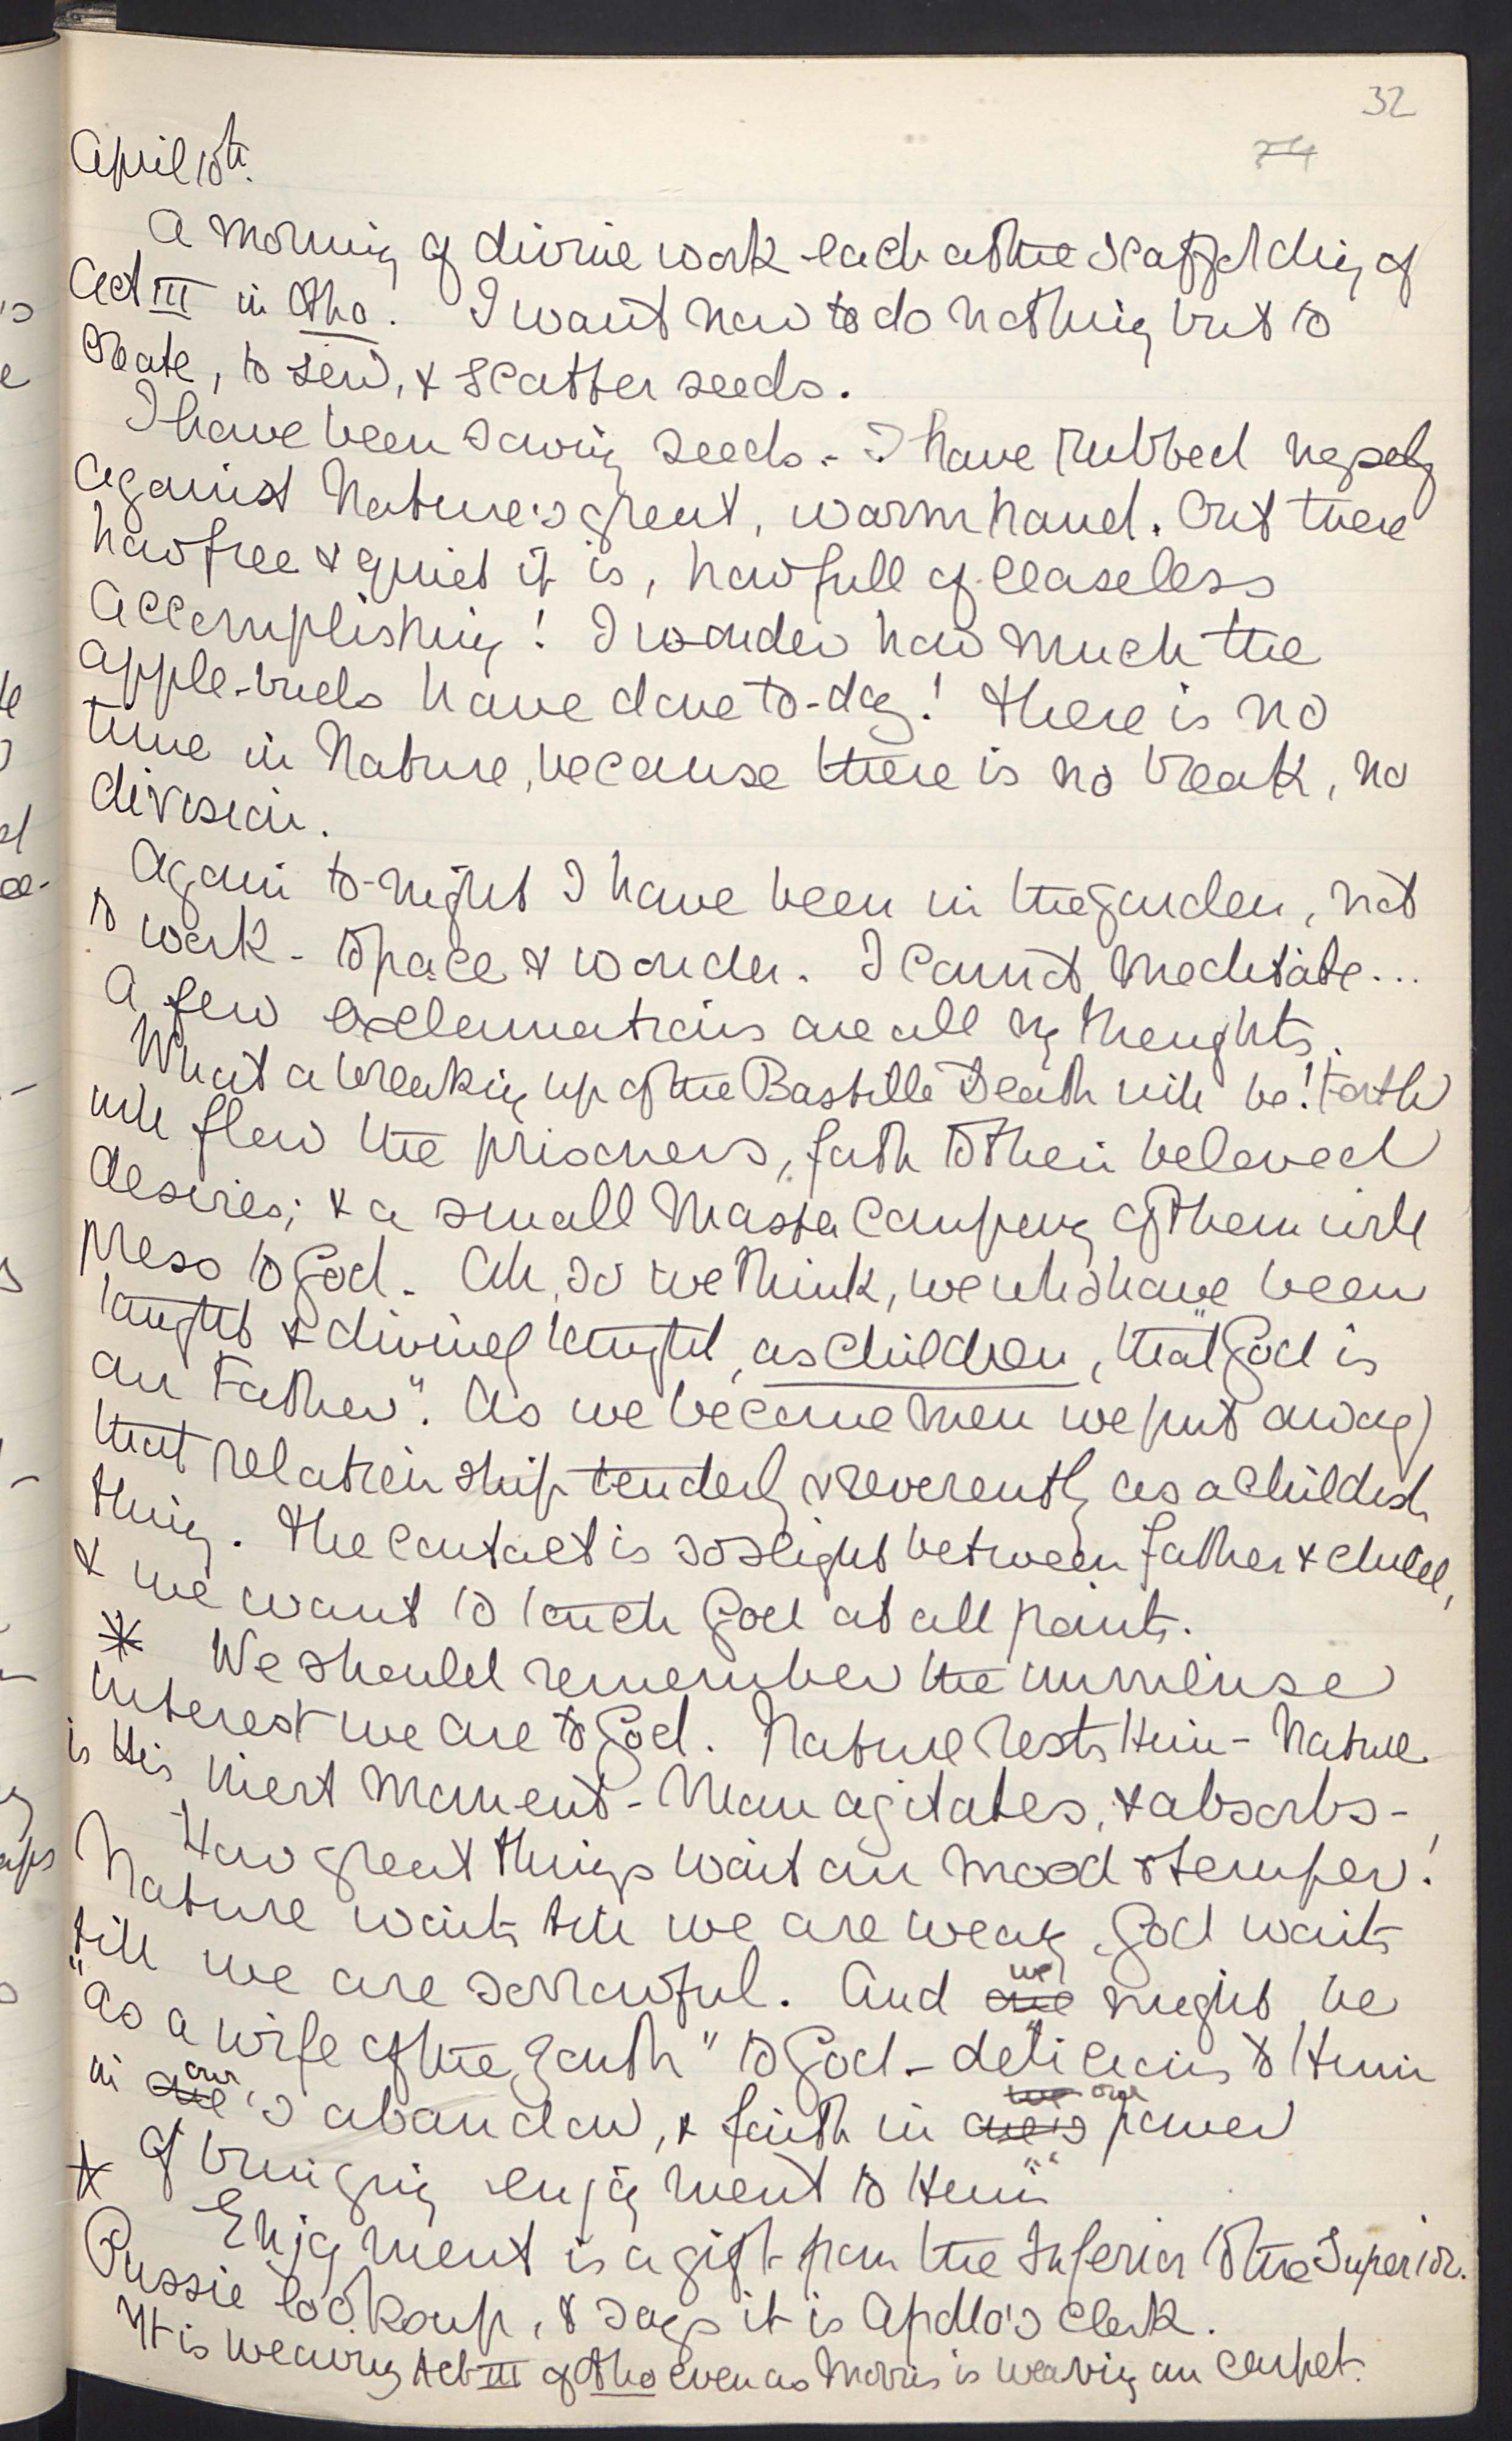 32
74
April 10th.
A morning of divine work each at the scaffolding of
Act III in Otho. I want now to do nothing but to
create, to sew, & scatter seeds.
I have been sowing seeds - I have rubbed myself
against Nature's great, warm hand. Out there
how free & quiet it is, how full of ceaseless
accomplishing! I wonder how much the
apple-buds have done to-day! There is no
time in Nature, because there is no break, no
division.
Again to-night I have been in the garden, not
to work - to pace & wonder. I cannot meditate...
A few exclamations are all my thoughts.
What a breaking up of the Bastille Death will be! Forth
will flow the prisoners, forth to their beloved
desires; & a small Master company of them will
press to God. Ah, so we think, we who have been
taught & divinely taught, as children, that "God is
our Father". As we become men we put away
that relationship tenderly & reverently as a childish
thing. The contact is so slight between father & child,
& we want to touch God at all points.
* We should remember the immense
interest we are to God. Nature rests Him - Nature
is His inert moment - Man agitates, & absorbs -
How great things wait our mood & temper!
Nature waits till we are weary, God waits
till we are sorrowful. And one we might be
"as a wife of the youth" to God - delicious to Him
in one's our abandon, & faith in one's our power
* of bringing enjoyment to Him"
Enjoyment is a gift from the Inferior to the Superior.
Pussie looks up, & says it is Apollo's clerk.
It is weaving Act III of Otho even as Morris is weaving our carpet.